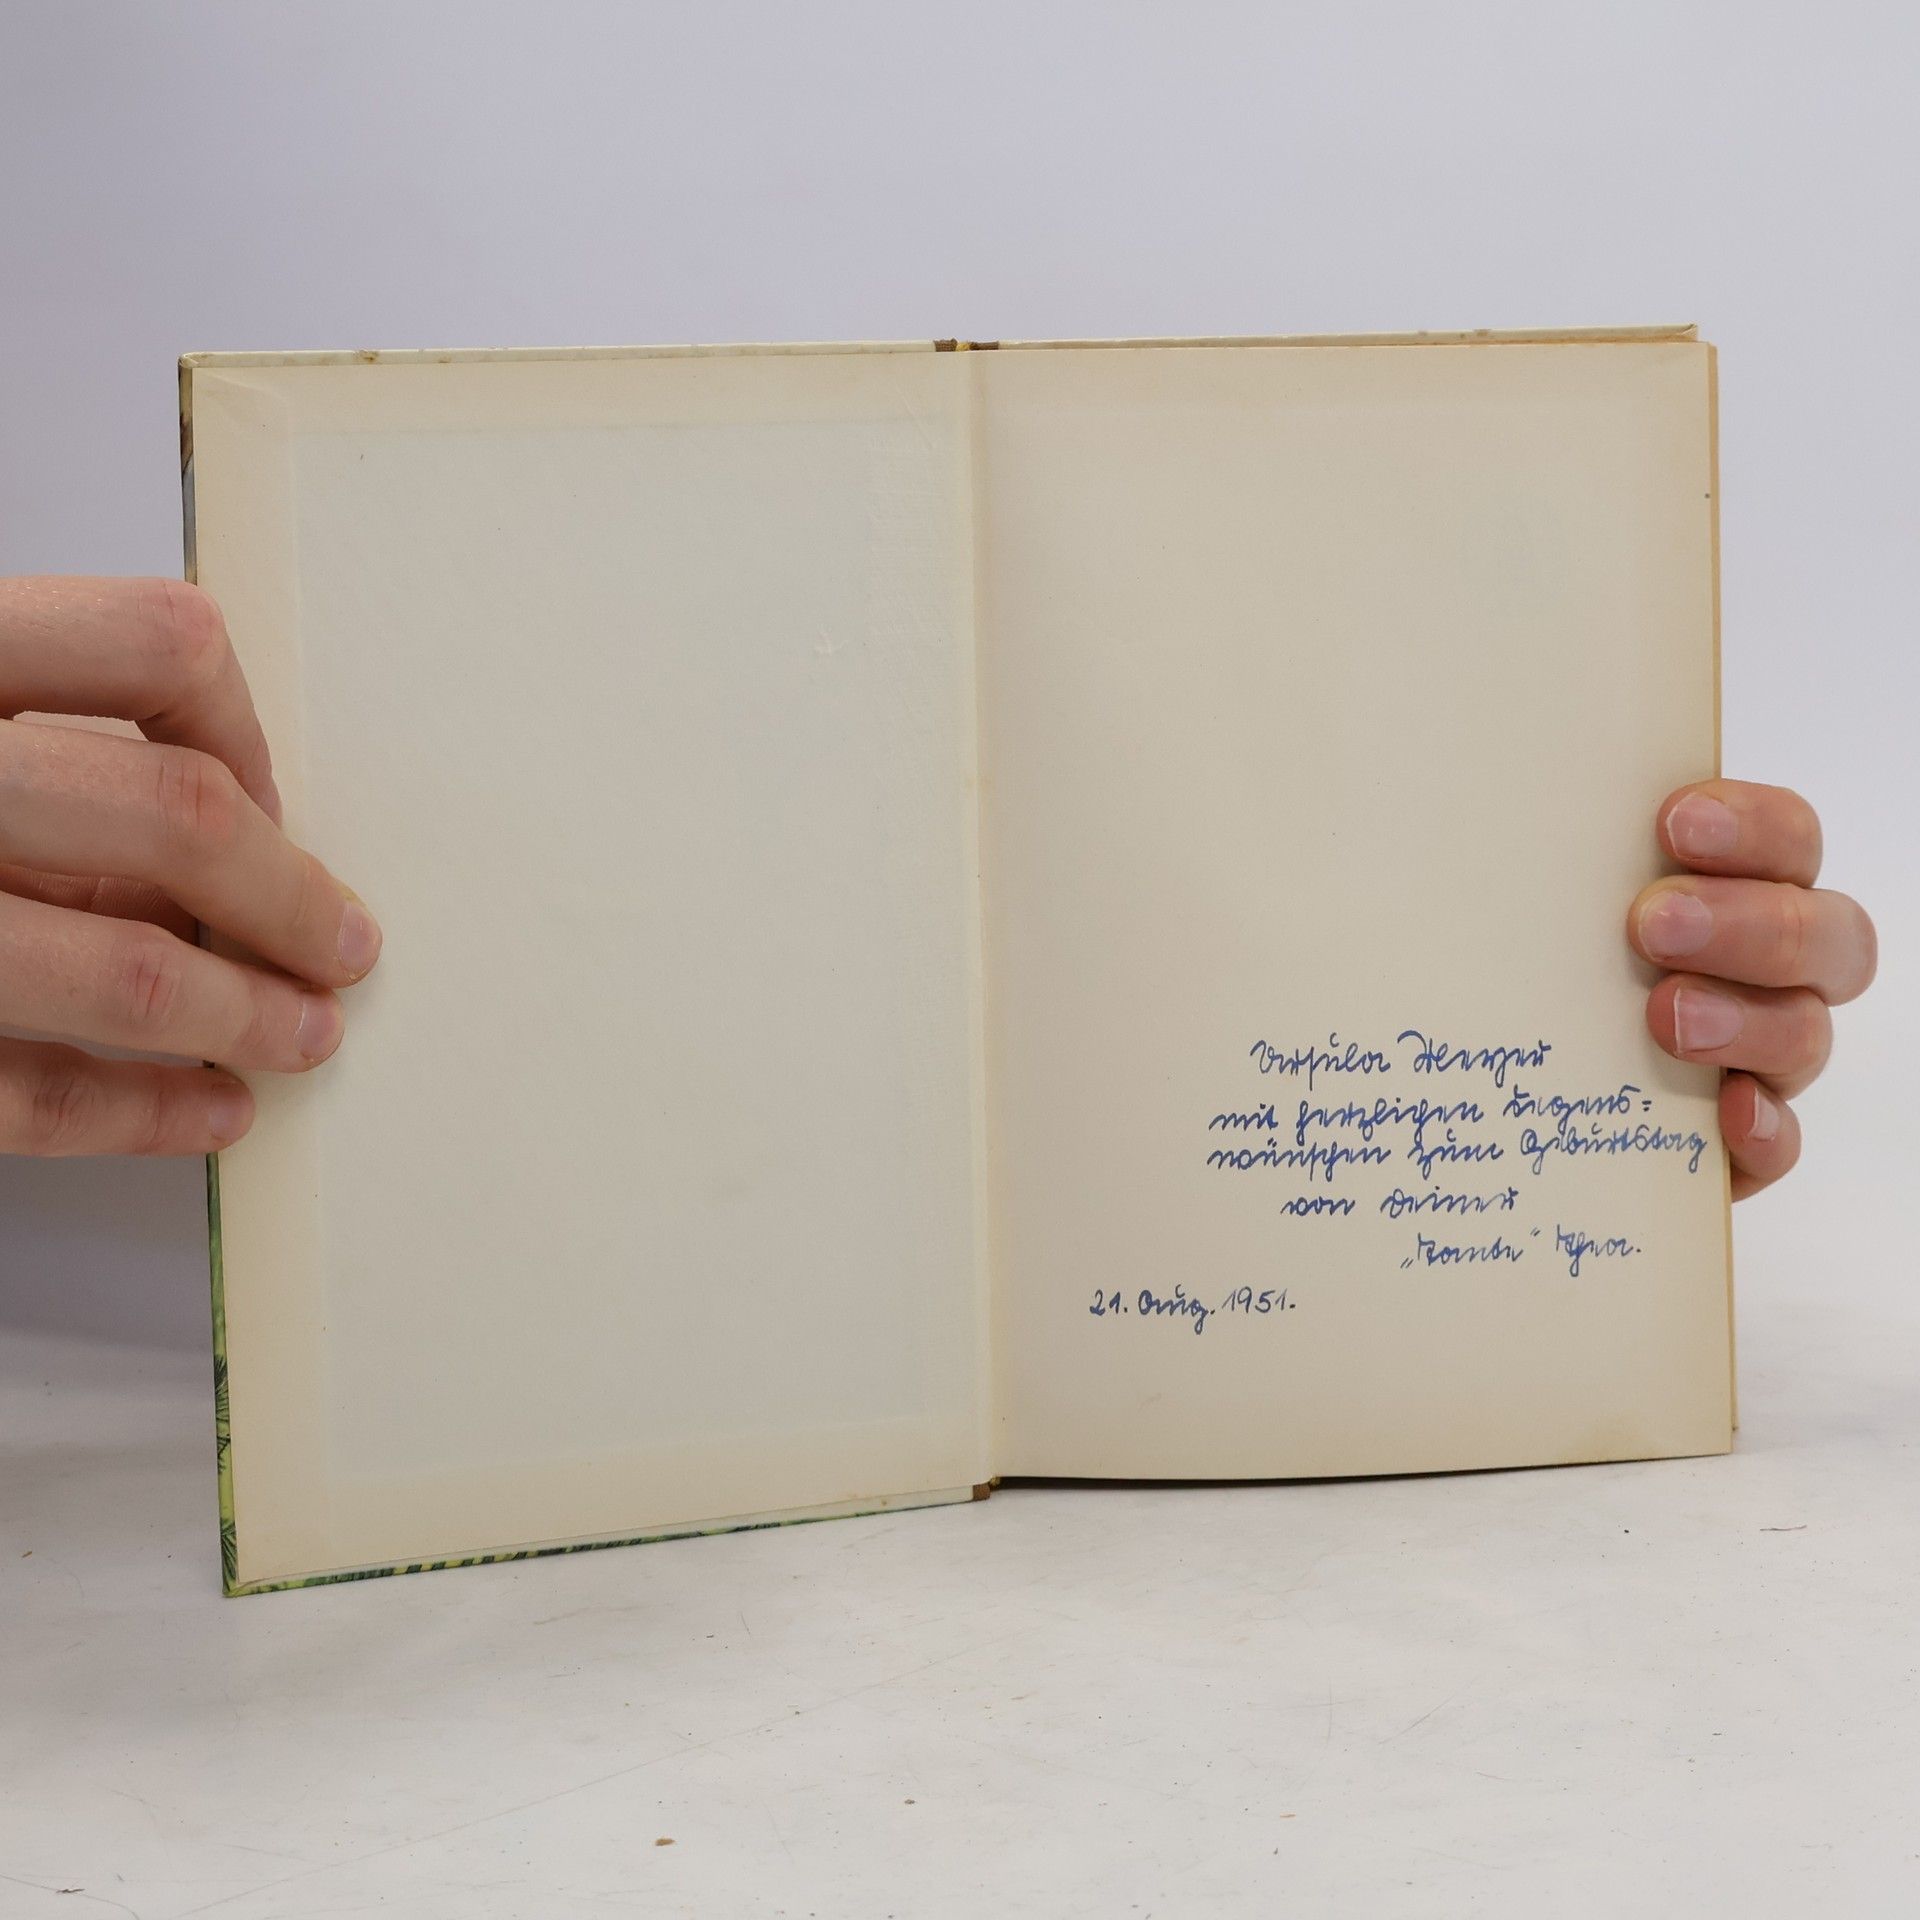 Ursula Meyer
mit herzlichen Segens=
wünschen zum Geburtstag
von Deiner
„Tante“ Thea.
21. Aug. 1951.